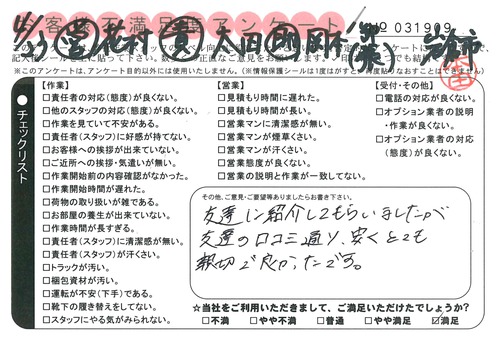 お客様不満足度アンケート
No 031909
※このアンケートは、アンケート目的以外には使用いたしません。(※情報保護シールは1度はがすと再度貼りなおすことはできません)
チェックリスト
【作業】
□責任者の対応(態度)が良くない。
□他のスタッフの対応(態度)が良くない。
□作業を見ていて不安がある。
□責任者(スタッフ)に好感が持てない。
□お客様への挨拶が出来ていない。
□ご近所への挨拶・気遣いが無い。
□作業開始前の内容確認がなかった。
□作業開始時間が遅れた。
□荷物の取り扱いが雑である。
□お部屋の養生が出来ていない。
□作業時間が長すぎる。
□責任者(スタッフ)に清潔感が無い。
□責任者(スタッフ)が汗くさい。
□トラックが汚い。
□梱包資材が汚い。
□運転が不安(下手)である。
□靴下の履き替えをしてない。
□スタッフにやる気がみられない。
【営業】
□見積もり時間に遅れた。
□見積もり時間が長い。
□営業マンに清潔感が無い。
□営業マンが煙草くさい。
□営業マンが汗くさい。
□営業態度が良くない。
□営業の説明と作業が一致してない。
【受付・その他】
□電話の対応が良くない。
□オプション業者の説明・作業が良くない。
□オプション業者の対応(態度)が良くない。
その他、ご意見・ご要望等ありましたらお書き下さい。
友達に紹介してもらいましたが
友達の口コミ通り、安くとても
親切で良かったです。
☆当社をご利用いただきまして、ご満足いただけたでしょうか?
□不満 □やや不満 □普通 □やや満足 ☑満足